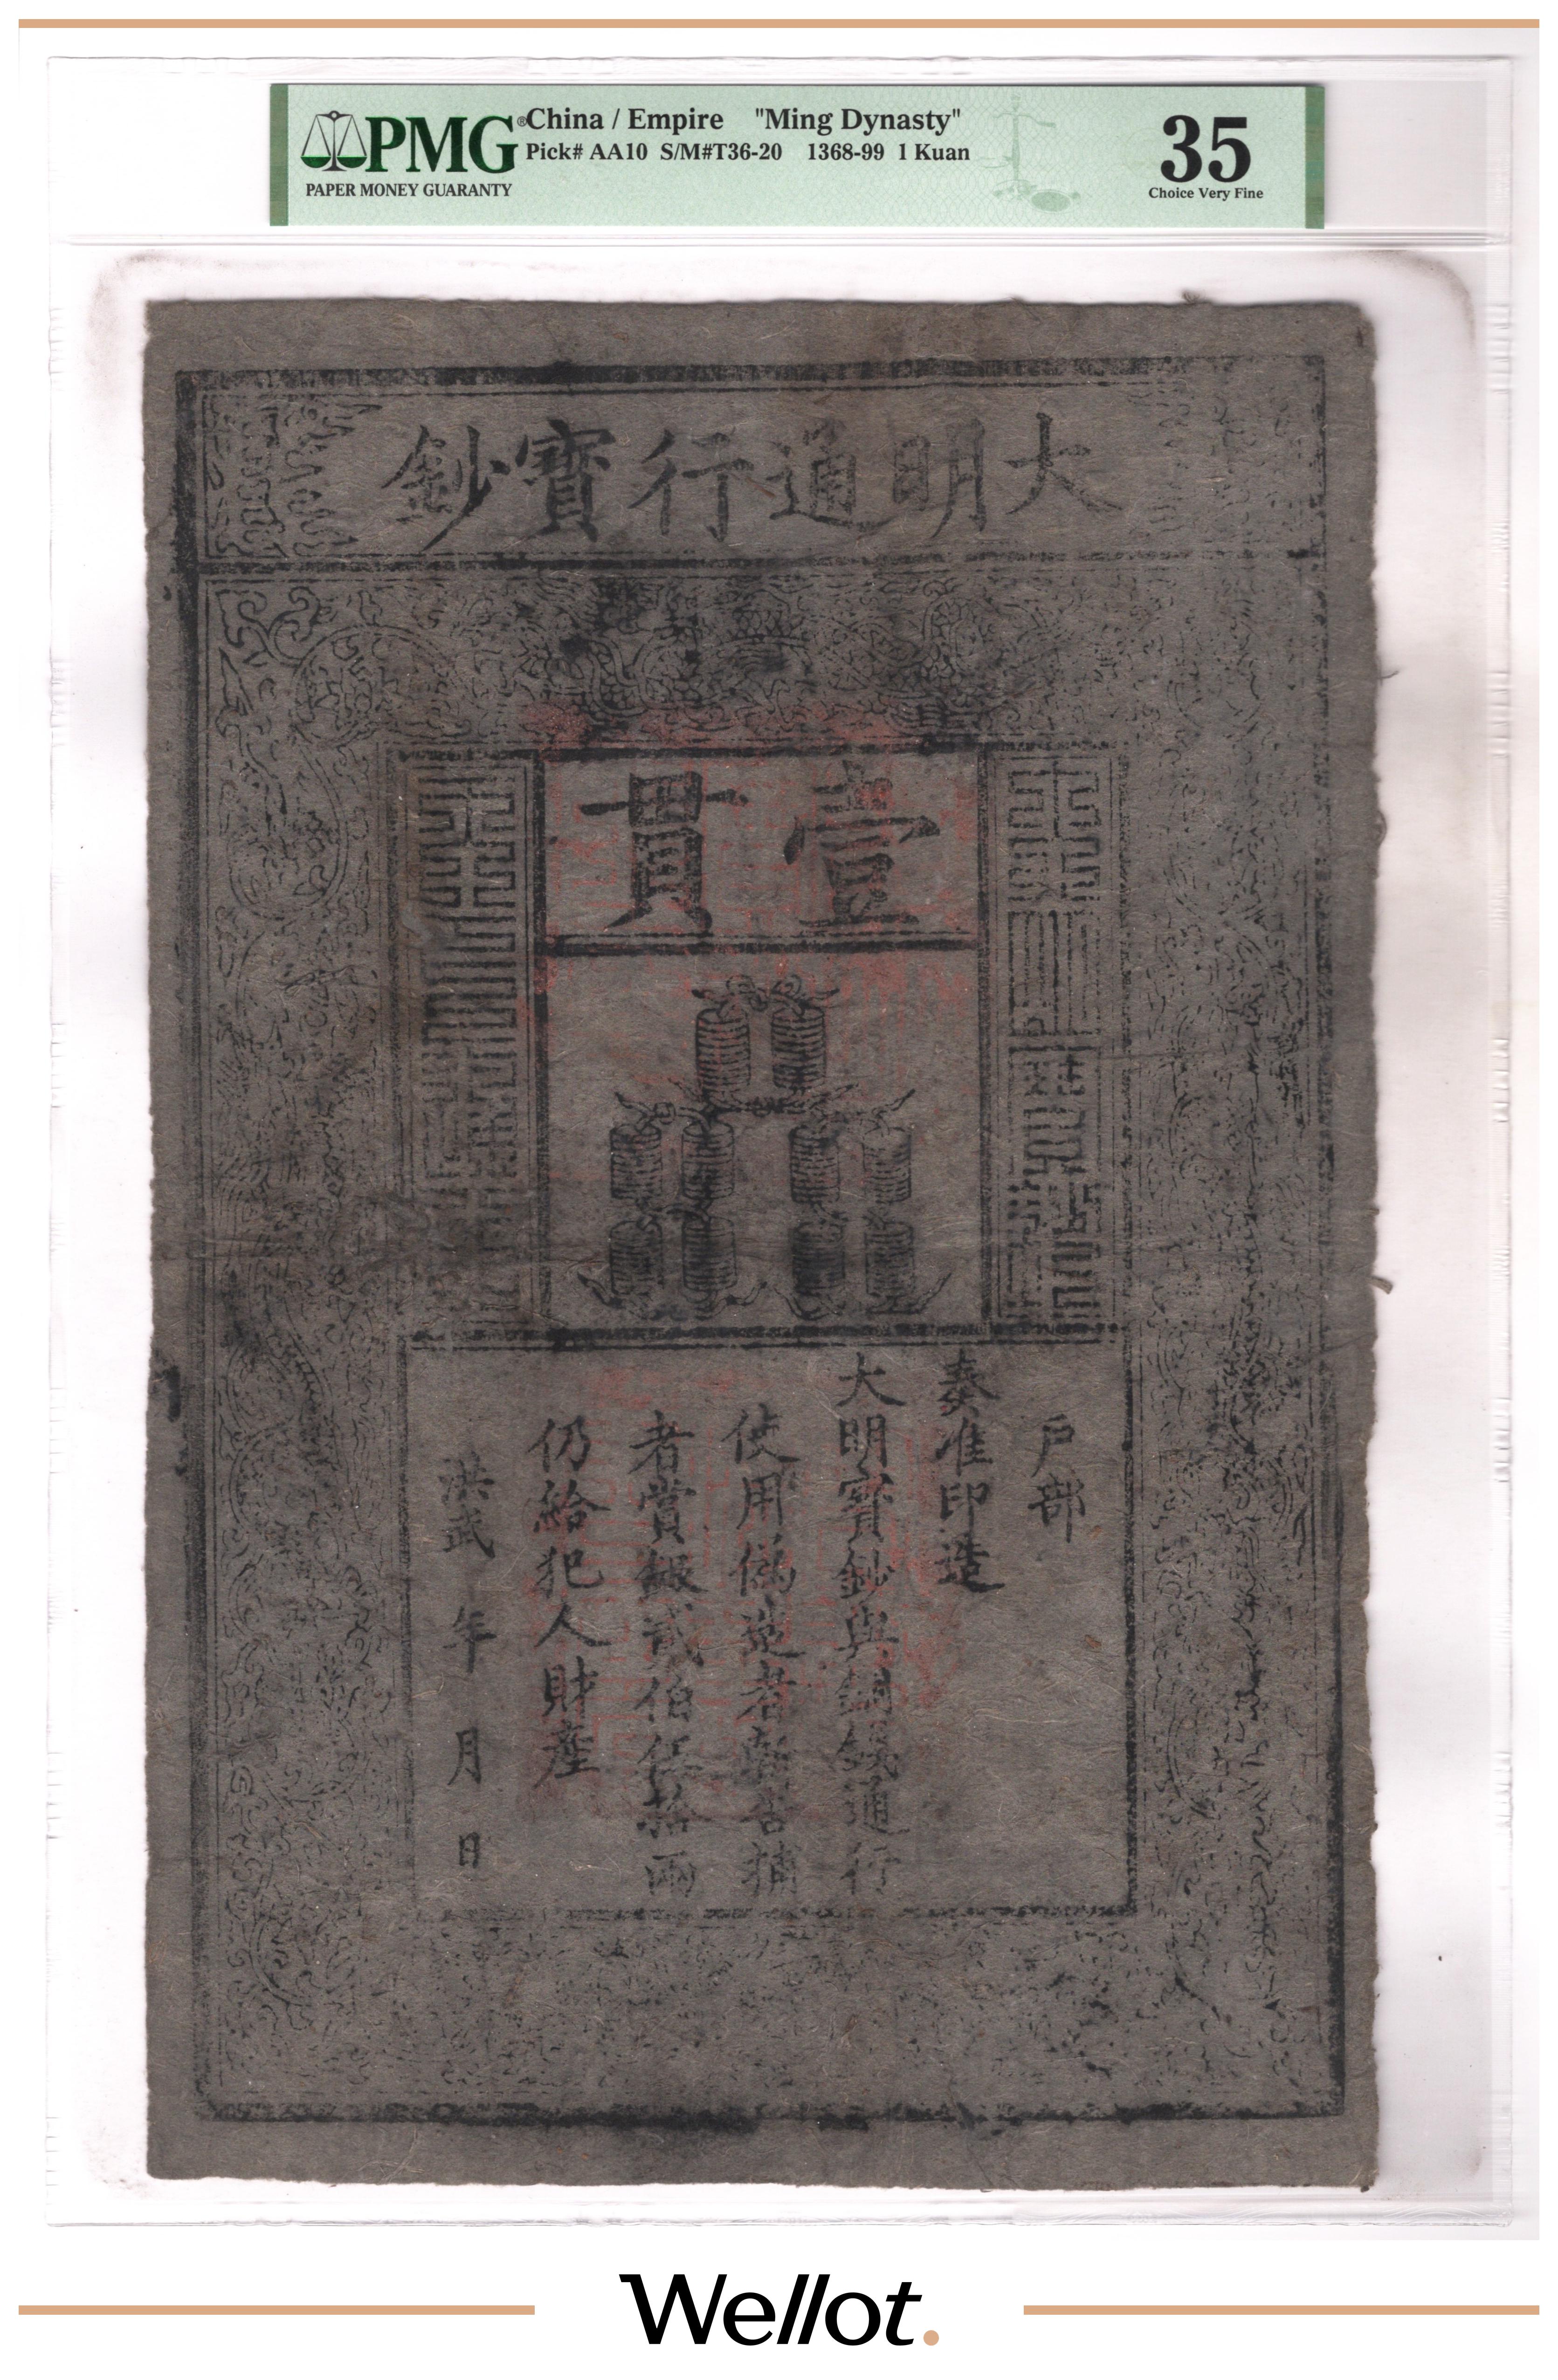 PMG®
PAPER MONEY GUARANTY
China / Empire "Ming Dynasty"
Pick# AA10 S/M#T36-20 1368-99 1 Kuan
35
Choice Very Fine
大明通行寶鈔
壹貫
戶部
奏准印造
大明寶鈔與銅錢通行
使用偽造者斬告捕
者賞銀貳伯伍拾兩
仍給犯人財產
洪武 年 月 日
Wellot.